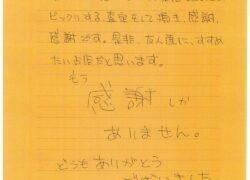 ビックリする査定をして頂き、感謝、
感謝です。是非、友人達に、すすめ
たいお店だと思います。
もう
感謝しか
ありません。
どうもありがとう
ございました